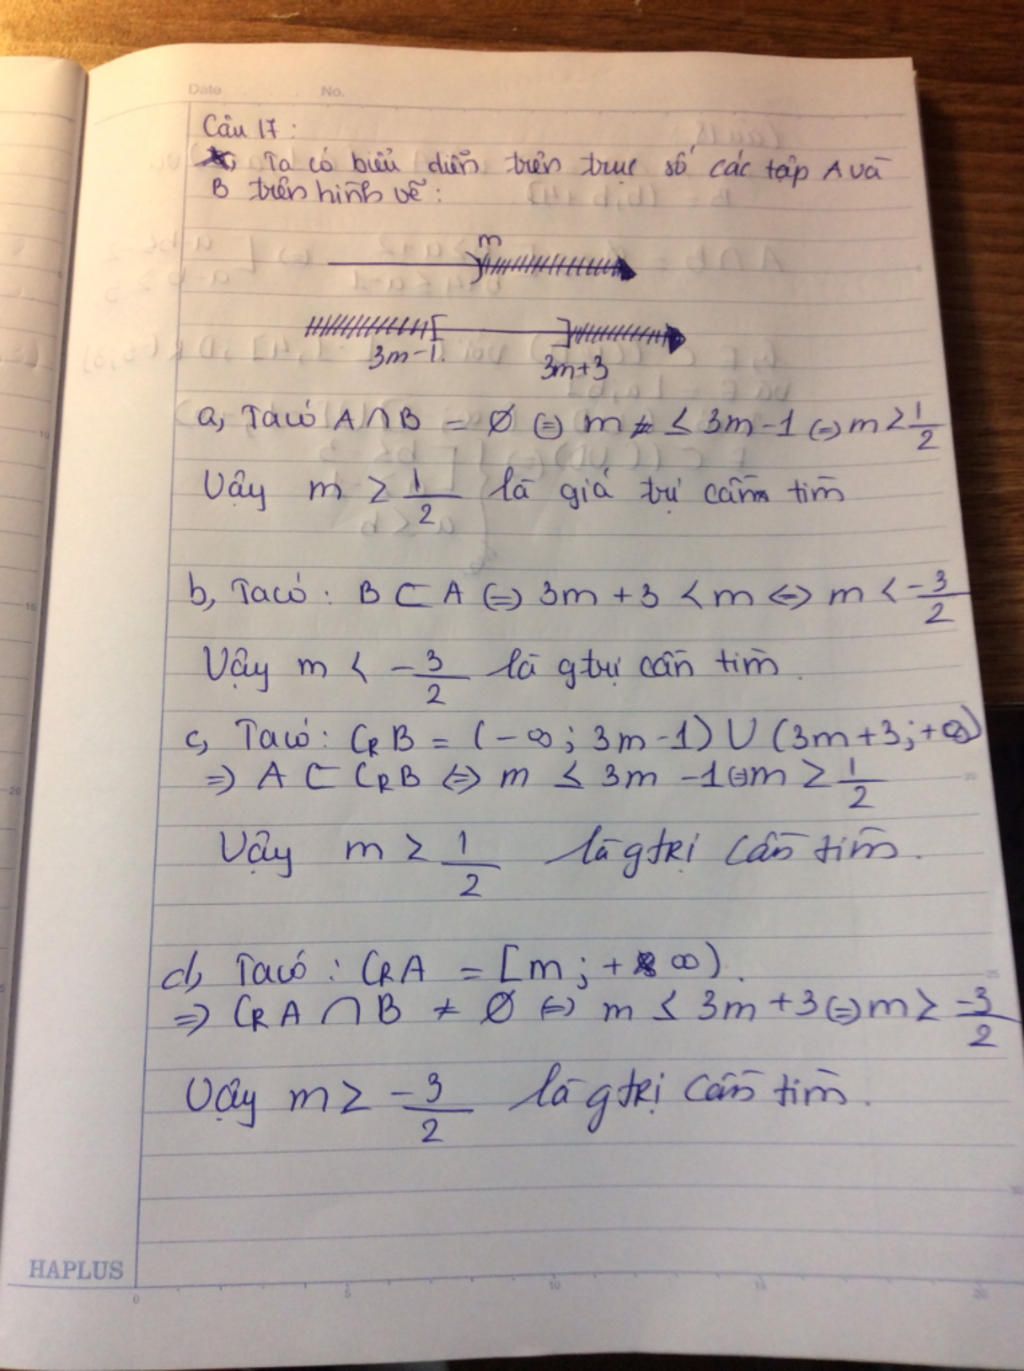 Date No.
Câu 17:
Ta có biểu diễn trên trục số các tập A và
B trên hình vẽ:
m
3m-1
3m+3
a, Ta có A∩B = ∅ ⇔ m ≤ 3m-1 ⇔ m ≥ 1/2
Vậy m ≥ 1/2 là giá trị cần tìm
b, Ta có: B ⊂ A ⇔ 3m+3 < m ⇔ m < -3/2
Vậy m < -3/2 là gtrị cần tìm.
c, Ta có: CRB = (-∞; 3m-1) ∪ (3m+3; +∞)
⇒ A ⊂ CRB ⇔ m ≤ 3m-1 ⇔ m ≥ 1/2
Vậy m ≥ 1/2 là gtrị cần tìm.
d, Ta có: CRA = [m; +∞).
⇒ CRA ∩ B ≠ ∅ ⇔ m ≤ 3m+3 ⇔ m ≥ -3/2
Vậy m ≥ -3/2 là gtrị cần tìm.
HAPLUS
0 5 10